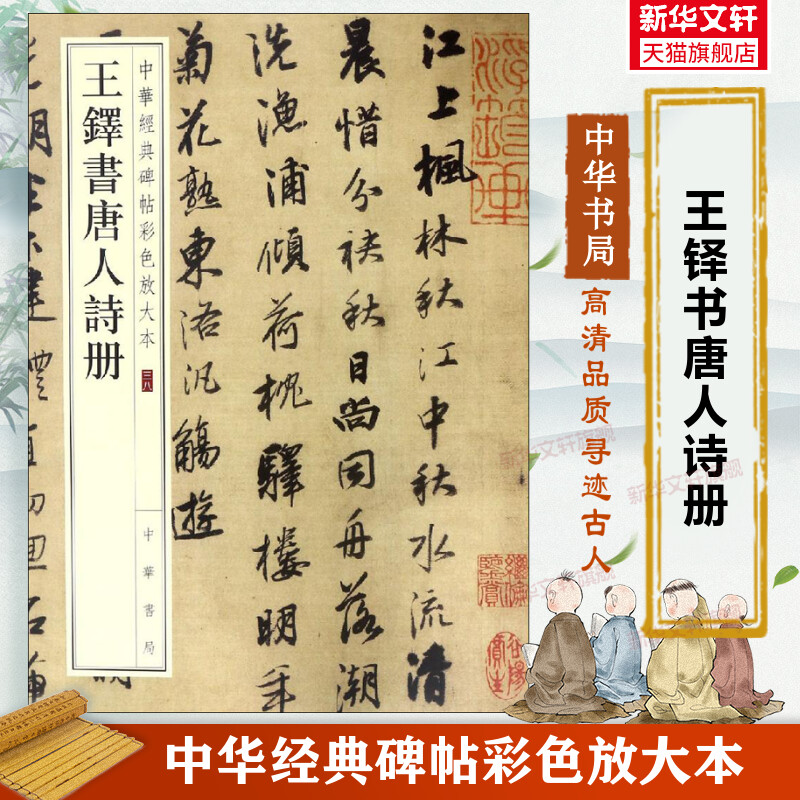 新华文轩
天猫旗舰店
王铎书唐人诗册
中华书局
高清品质 寻迹古人
江上楓林秋江中秋水流清
晨惜分袂秋日尚同舟落潮
洗漁浦傾荷枕驛樓明年
菊花熟東洛汎觴遊
中華經典碑帖彩色放大本 三八
中華書局
王鐸書唐人詩册
新华文轩旗舰
新华文轩旗舰
新华文轩旗舰
中华经典碑帖彩色放大本